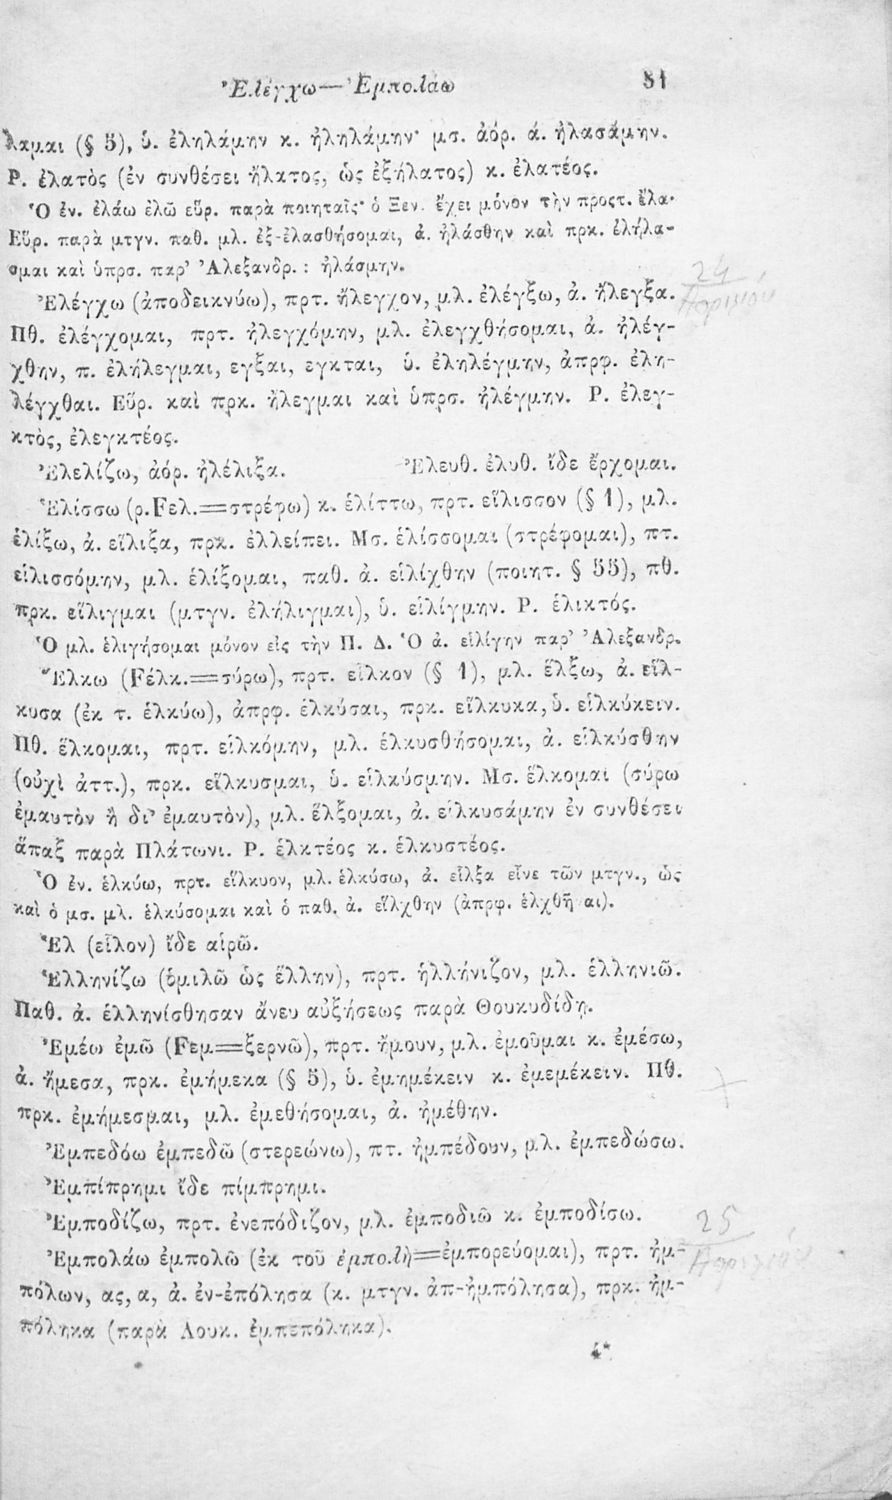 Ἐλέγχω—Ἐμπολάω 81
λαμαι (§ 5), ὑ. ἐληλάμην κ. ἠληλάμην· μσ. ἀόρ. ά. ἠλασάμην.
Ρ. ἐλατὸς (ἐν συνθέσει ἤλατος, ὡς ἐξήλατος) κ. ἐλατέος.
Ὁ ἐν. ἐλάω ἐλῶ εὕρ. παρὰ ποιηταῖς· ὁ Ξεν. ἔχει μόνον τὴν προςτ. ἔλα·
Εὕρ. παρὰ μτγν. παθ. μλ. ἐξ-ελασθήσομαι, ἀ. ἠλάσθην καὶ πρκ. ἐλήλα-
σμαι καὶ ὑπρσ. παρ' Ἀλεξανδρ. : ἠλάσμην.
24
Ἐλέγχω (ἀποδεικνύω), πρτ. ἤλεγχον, μλ. ἐλέγξω, ἀ. ἤλεγξα.
Πθ. ἐλέγχομαι, πρτ. ἠλεγχόμην, μλ. ἐλεγχθήσομαι, ἀ. ἠλέγ-
χθην, π. ἐλήλεγμαι, εγξαι, εγκται, ὑ. ἐληλέγμην, ἀπρφ. ἐλη-
λέγχθαι. Εὕρ. καὶ πρκ. ἤλεγμαι καὶ ὑπρσ. ἠλέγμην. Ρ. ἐλεγ-
κτὸς, ἐλεγκτέος.
Ἐλελίζω, ἀόρ. ἠλέλιξα. Ἐλευθ. ἐλυθ. ἴδε ἔρχομαι.
Ἑλίσσω (ρ.Fελ.=στρέφω) κ. ἑλίττω, πρτ. εἵλισσον (§ 1), μλ.
ἑλίξω, ἀ. εἵλιξα, πρκ. ἐλλείπει. Μσ. ἑλίσσομαι (στρέφομαι), πτ.
εἱλισσόμην, μλ. ἑλίξομαι, παθ. ἀ. εἱλίχθην (ποιητ. § 55), πθ.
πρκ. εἵλιγμαι (μτγν. ἐλήλιγμαι), ὑ. εἱλίγμην. Ρ. ἑλικτός.
Ὁ μλ. ἑλιγήσομαι μόνον εἰς τὴν Π. Δ. Ὁ ἀ. εἱλίγην παρ' Ἀλεξανδρ.
Ἕλκω (Fέλκ.=σύρω), πρτ. εἷλκον (§ 1), μλ. ἕλξω, ἀ. εἵλ-
κυσα (ἐκ τ. ἑλκύω), ἀπρφ. ἑλκύσαι, πρκ. εἵλκυκα, ὑ. εἱλκύκειν.
Πθ. ἕλκομαι, πρτ. εἱλκόμην, μλ. ἑλκυσθήσομαι, ἀ. εἱλκύσθην
(οὐχὶ ἀττ.), πρκ. εἵλκυσμαι, ὑ. εἱλκύσμην. Μσ. ἕλκομαι (σύρω
ἐμαυτὸν ἢ δι' ἐμαυτὸν), μλ. ἕλξομαι, ἀ. εἱλκυσάμην ἐν συνθέσει
ἅπαξ παρὰ Πλάτωνι. Ρ. ἑλκτέος κ. ἑλκυστέος.
Ὁ ἐν. ἑλκύω, πρτ. εἵλκυον, μλ. ἑλκύσω, ἀ. εἷλξα εἶνε τῶν μτγν., ὡς
καὶ ὁ μσ. μλ. ἑλκύσομαι καὶ ὁ παθ. ἀ. εἵλχθην (ἀπρφ. ἑλχθῆναι).
Ἑλ (εἷλον) ἴδε αἱρῶ.
Ἑλληνίζω (ὁμιλῶ ὡς ἕλλην), πρτ. ἡλλήνιζον, μλ. ἑλληνιῶ.
Παθ. ἀ. ἑλληνίσθησαν ἄνευ αὐξήσεως παρὰ Θουκυδίδῃ.
Ἐμέω ἐμῶ (Fεμ=ξερνῶ), πρτ. ἤμουν, μλ. ἐμοῦμαι κ. ἐμέσω,
ἀ. ἤμεσα, πρκ. ἐμήμεκα (§ 5), ὑ. ἐμημέκειν κ. ἐμεμέκειν. Πθ.
πρκ. ἐμήμεσμαι, μλ. ἐμεθήσομαι, ἀ. ἠμέθην.
Ἐμπεδόω ἐμπεδῶ (στερεώνω), πτ. ἠμπέδουν, μλ. ἐμπεδώσω.
Ἐμπίπρημι ἴδε πίμπρημι.
Ἐμποδίζω, πρτ. ἐνεπόδιζον, μλ. ἐμποδιῶ κ. ἐμποδίσω.
25
Ἐμπολάω ἐμπολῶ (ἐκ τοῦ ἐμπολὴ=ἐμπορεύομαι), πρτ. ἠμ-
πόλων, ας, α, ἀ. ἐν-επόλησα (κ. μτγν. ἀπ-ημπόλησα), πρκ. ἠμ-
πόληκα (παρὰ Λουκ. ἐμπεπόληκα).
4*